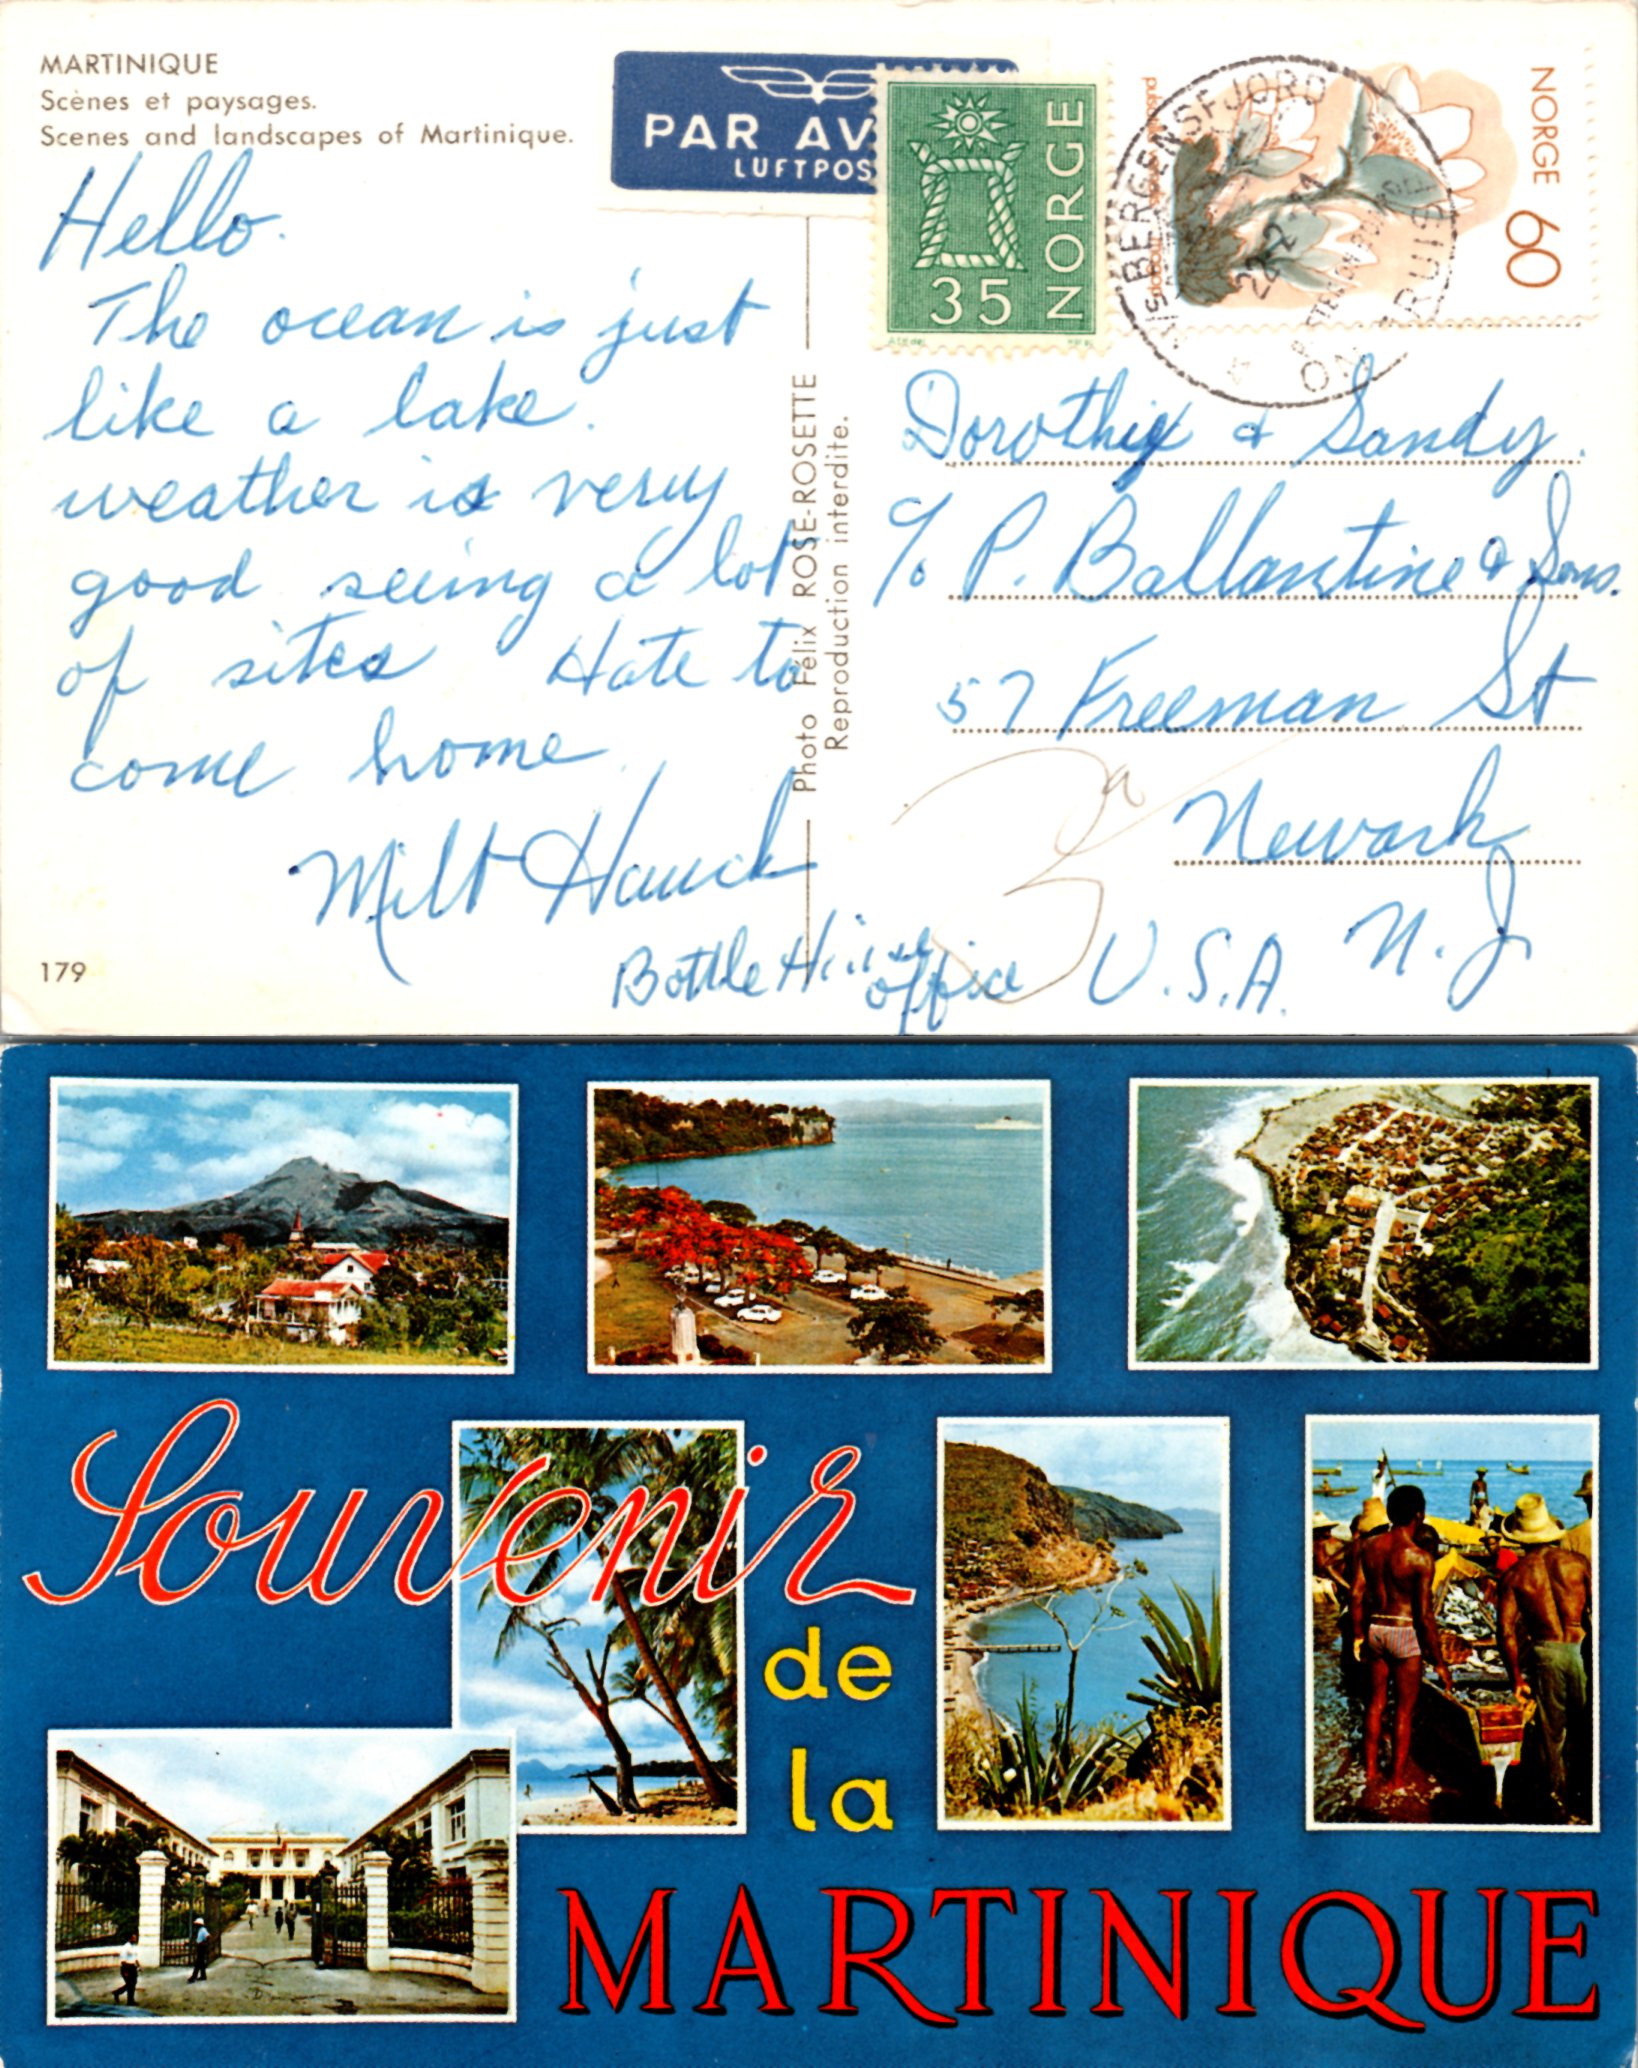 MARTINIQUE
Scènes et paysages.
Scenes and landscapes of Martinique.
PAR AV
LUFTPOS
NORGE
35
NORGE
60
M/S BERGENSFJORD
22-2-71
ON CRUISE
Hello.
The ocean is just
like a lake.
weather is very
good seeing a lot
of sites Hate to
come home
Milt Hauck
Bottle House
office
Photo Félix ROSE-ROSETTE
Reproduction interdite.
Dorothy & Sandy.
c/o P. Ballantine & Sons.
57 Freeman St
Newark
N.J
U.S.A.
179
Souvenir
de
la
MARTINIQUE